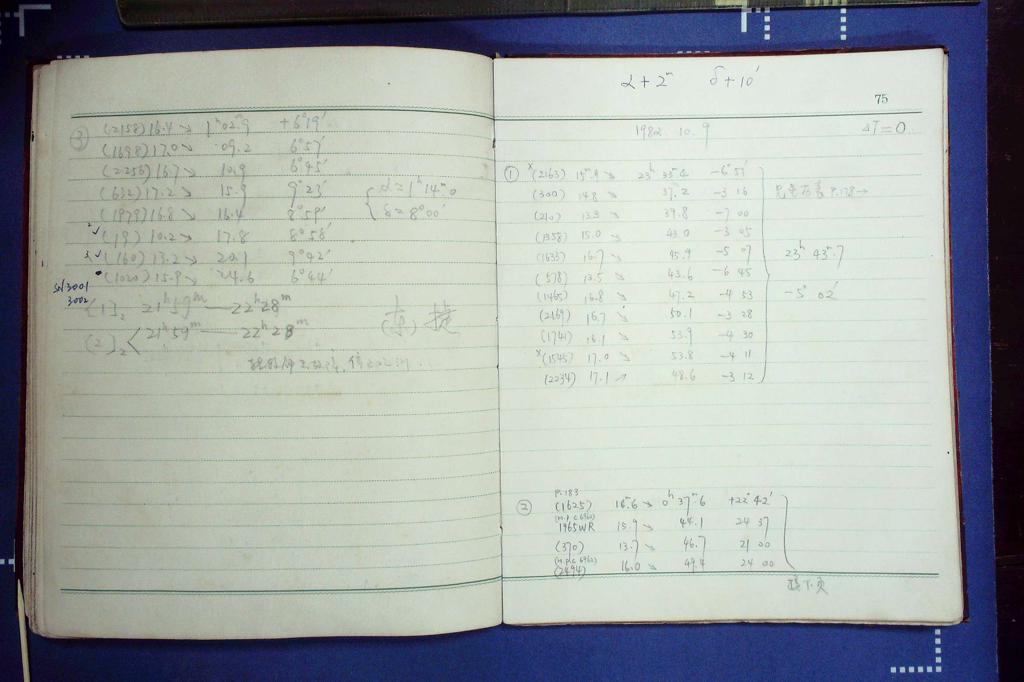 ③ (2158) 16.4 ↘ 1ʰ02.ᵐ9 +6°19′
(1698) 17.0 ↘ 09.2 6°57′
(2256) 16.7 ↘ 10.9 6°45′
(632) 17.2 ↘ 15.9 9°23′
(1979) 16.8 ↘ 16.4 8°59′
(19) 10.2 ↘ 17.8 8°58′
(160) 13.2 ↘ 20.1 9°42′
(1020) 15.9 ↘ 24.6 6°44′
α=1ʰ14ᵐ.0
δ=8°00′
SN3001
3002
[1]₂ 21ʰ59ᵐ—22ʰ28ᵐ
[2]₂ 21ʰ59ᵐ—22ʰ28ᵐ
捷
α+2ᵐ δ+10′
75
1982 10.9 ΔT=0
① ˣ(2163) 15ᵐ.9 ↘ 23ʰ 35ᵐ.2 -6°51′
(300) 14.8 37.2 -3 16
(210) 13.3 39.8 -7 00
(1358) 15.0 ↘ 43.0 -3 05
(1633) 16.7 ↘ 45.9 -5 07
(578) 13.5 ↘ 43.6 -6 45
(1465) 16.8 ↘ 47.2 -4 53
(2169) 16.7 ↘ 50.1 -3 28
(1741) 16.1 ↘ 53.9 -4 30
ˣ(1545) 17.0 ↘ 53.8 -4 11
(2234) 17.1 ↗ 48.6 -3 12
P.178→
23ʰ 43ᵐ.7
-5° 02′
P.183
② (1625) 16ᵐ.6 ↘ 0ʰ 37ᵐ.6 +22°42′
(M.P.C 6962)
1965WR 15.9 ↘ 44.1 24 37
(370) 13.7 ↘ 46.7 21 00
(M.P.C 6962)
(2494) 16.0 ↘ 49.4 24 00
接下页